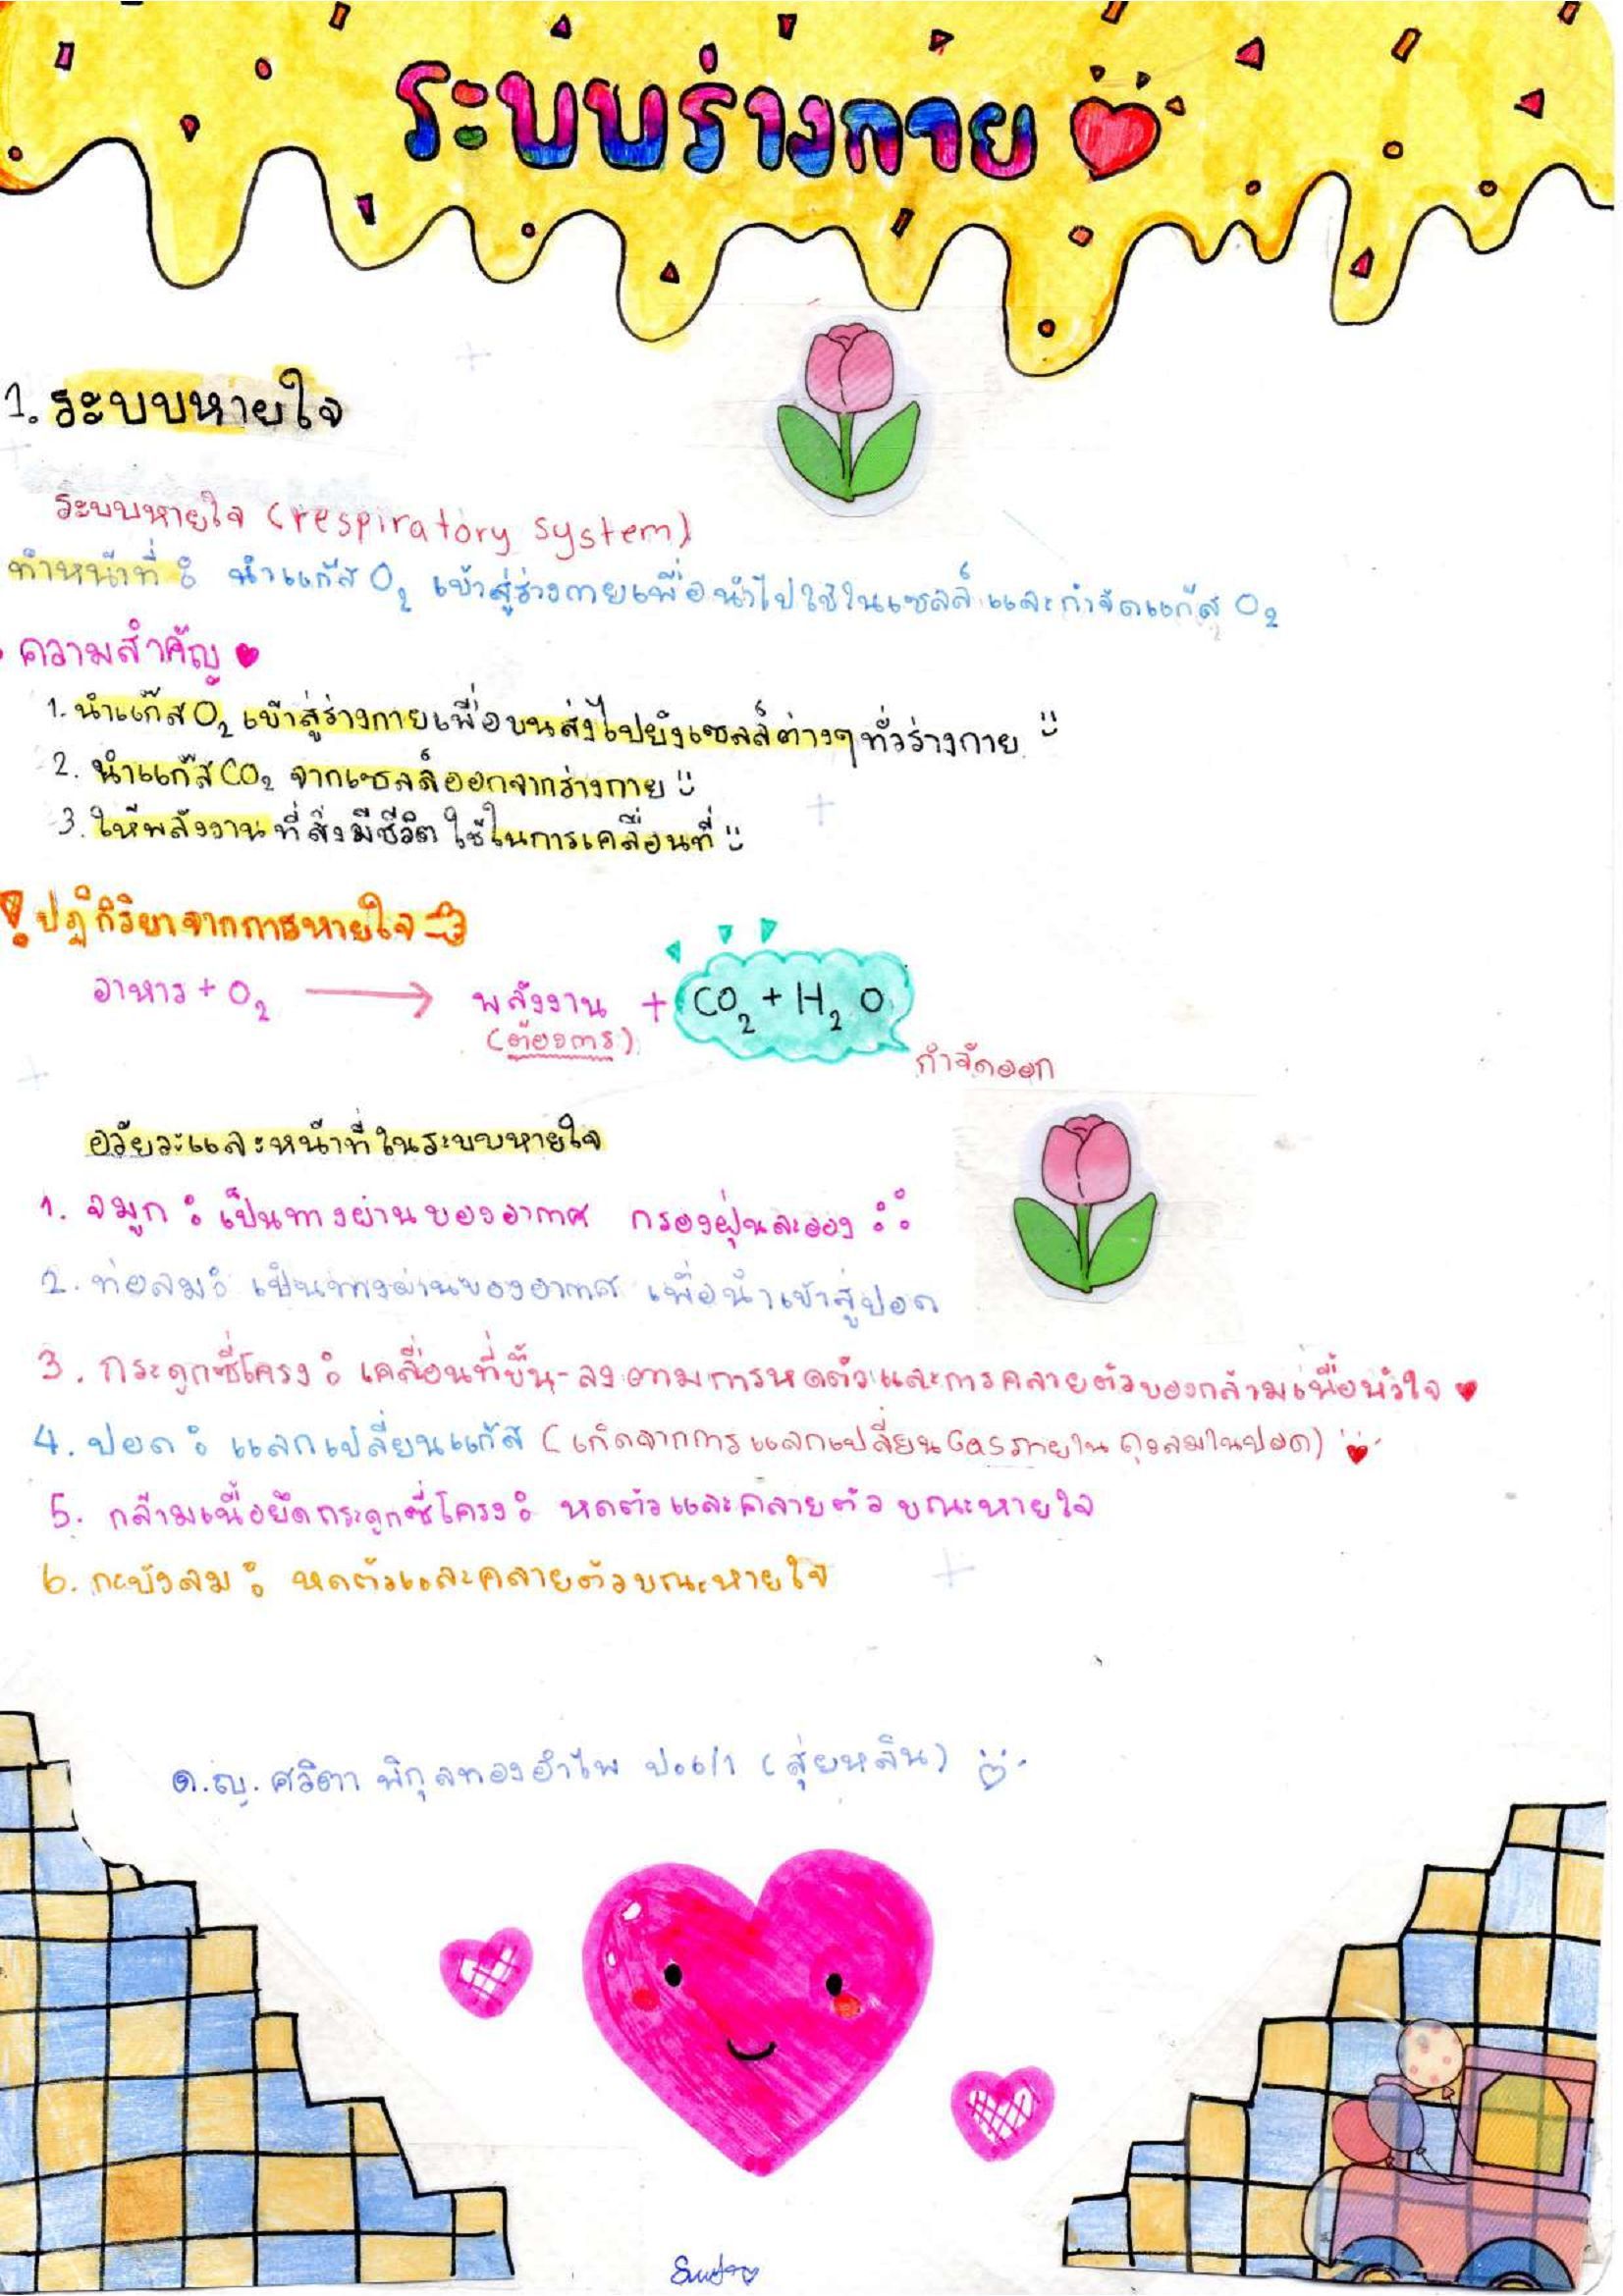 ระบบร่างกาย
1. ระบบหายใจ
ระบบหายใจ (respiratory system)
ทำหน้าที่ : นำแก๊ส O₂ เข้าสู่ร่างกายเพื่อนำไปใช้ในเซลล์ และกำจัดแก๊ส O₂
ความสำคัญ
1. นำแก๊ส O₂ เข้าสู่ร่างกายเพื่อขนส่งไปยังเซลล์ต่างๆทั่วร่างกาย
2. นำแก๊ส CO₂ จากเซลล์ออกจากร่างกาย
3. ให้พลังงานที่สิ่งมีชีวิตใช้ในการเคลื่อนที่
ปฏิกิริยาจากการหายใจ
อาหาร + O₂ → พลังงาน + CO₂ + H₂O
(ต้องการ)
กำจัดออก
อวัยวะและหน้าที่ในระบบหายใจ
1. จมูก : เป็นทางผ่านของอากาศ กรองฝุ่นละออง
2. ท่อลม : เป็นทางผ่านของอากาศ เพื่อนำเข้าสู่ปอด
3. กระดูกซี่โครง : เคลื่อนที่ขึ้น-ลงตามการหดตัวและการคลายตัวของกล้ามเนื้อหัวใจ
4. ปอด : แลกเปลี่ยนแก๊ส (เกิดจากการแลกเปลี่ยน Gas ภายใน ถุงลมในปอด)
5. กล้ามเนื้อยึดกระดูกซี่โครง : หดตัวและคลายตัว ขณะหายใจ
6. กะบังลม : หดตัวและคลายตัวขณะหายใจ
ด.ญ. ศวิตา พิกุลทองอำไพ ป.6/1 (สุ่ยหลิน)